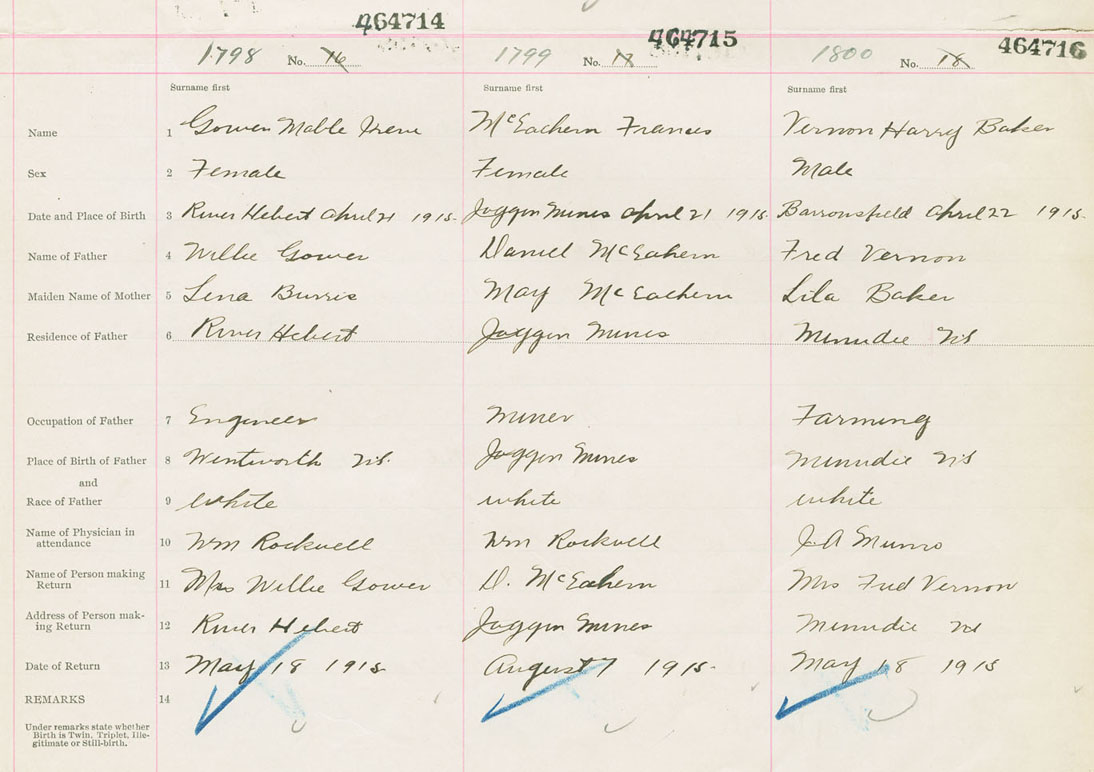 464714 464715 464716
1798 No. 16 1799 No. 17 1800 No. 18
Surname first Surname first Surname first
Name 1 Gower Mable Irene McEachern Frances Vernon Harry Baker
Sex 2 Female Female Male
Date and Place of Birth 3 River Hebert April 21 1915. Joggin Mines April 21 1915. Barronsfield April 22 1915.
Name of Father 4 Willie Gower Daniel McEahern Fred Vernon
Maiden Name of Mother 5 Lena Burris May McEachern Lila Baker
Residence of Father 6 River Hebert Joggin Mines Minudie NS
Occupation of Father 7 Engineer Miner Farming
Place of Birth of Father 8 Wentworth N.S. Joggin Mines Minudie NS
and
Race of Father 9 white white white
Name of Physician in
attendance 10 Wm Rockwell Wm Rockwell J A Munro
Name of Person making
Return 11 Mrs Willie Gower D. McEahern Mrs Fred Vernon
Address of Person mak-
ing Return 12 River Hebert Joggin Mines Minudie NS
Date of Return 13 May 18 1915. August 7 1915. May 18 1915
REMARKS 14
Under remarks state whether
Birth is Twin, Triplet, Ille-
gitimate or Still-birth.